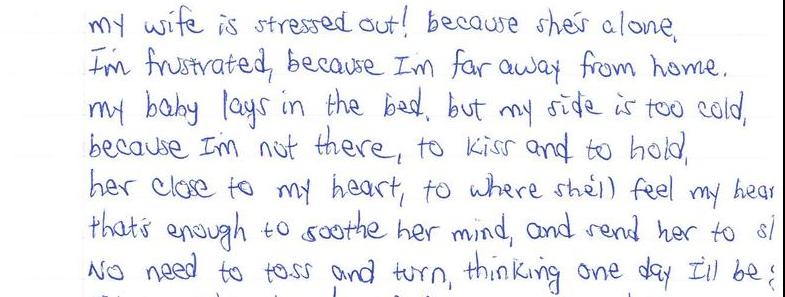 my wife is stressed out! because she's alone,
I'm frustrated, because I'm far away from home.
my baby lays in the bed, but my side is too cold,
because I'm not there, to kiss and to hold,
her close to my heart, to where she'll feel my
that's enough to soothe her mind, and send her to
No need to toss and turn, thinking one day I'll be